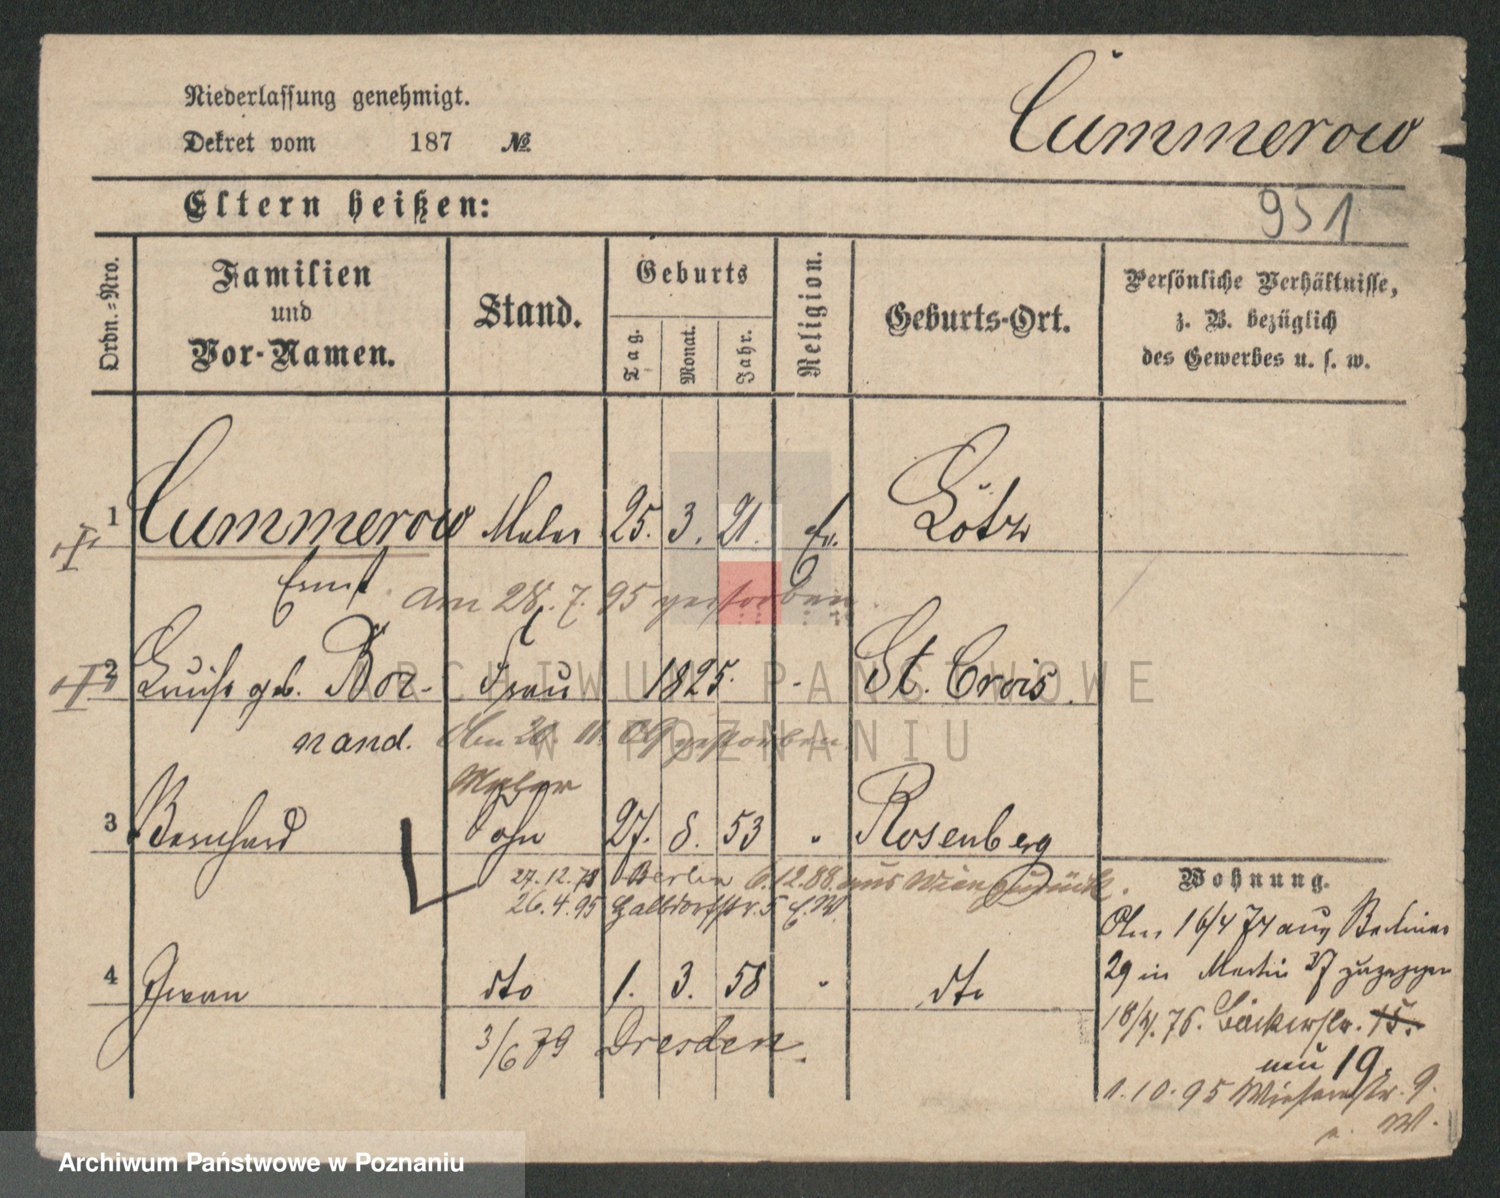 Niederlassung genehmigt.
Cummerow
Dekret vom 187 №
Eltern heißen:
951
Ordn.-Nro.
Familien
und
Vor-Namen.
Stand.
Geburts
Tag.
Monat.
Jahr.
Religion.
Geburts-Ort.
Persönliche Verhältnisse,
z. B. bezüglich
des Gewerbes u. s. w.
1 Cummerow Maler 25. 3. 21. Ev. Götz
Ernst. am 28. 7. 95 gestorben.
2 Luise geb. Bor- Frau 1825. - St. Crois.
nand. Am 20. 11. 09 gestorben
Maler
3 Bernhard Sohn 27. 8. 53 " Rosenberg
27.12.78 Berlin 6.12.88. aus Wien zurück.
26.4.95 Halldorfstr. 5
4 Iwan dto 1. 3. 58 " dto
3/6 79 Dresden.
Wohnung.
Am 16/4 74 aus Berliner
29 in Martin 37 zugezogen
18/4. 76. Bäckerstr. 15.
neu 19.
1.10.95 Wiesenstr. 9.
ARCHIWUM PAŃSTWOWE
W POZNANIU
Archiwum Państwowe w Poznaniu